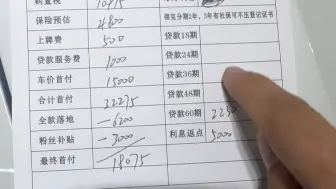 购置税 10975
保险预估 4800 领克分期2年,3年有社保可不压登记证书
上牌费 500 贷款18期
贷款服务费 1000 贷款24期
车价首付 15000 贷款36期
合计首付 32275 贷款48期
全款落地 -6200 贷款60期
粉丝补贴 -3000 利息返点 5000
最终首付 18075